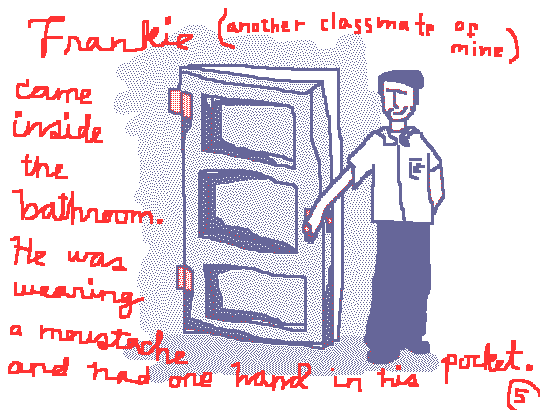 Frankie (another classmate of mine)
came
inside
the
bathroom.
He was
wearing
a moustache
and had one hand in his pocket.
5